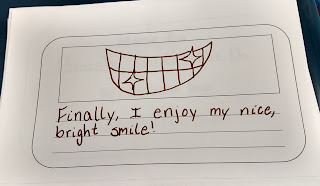 Finally, I enjoy my nice,
bright smile!